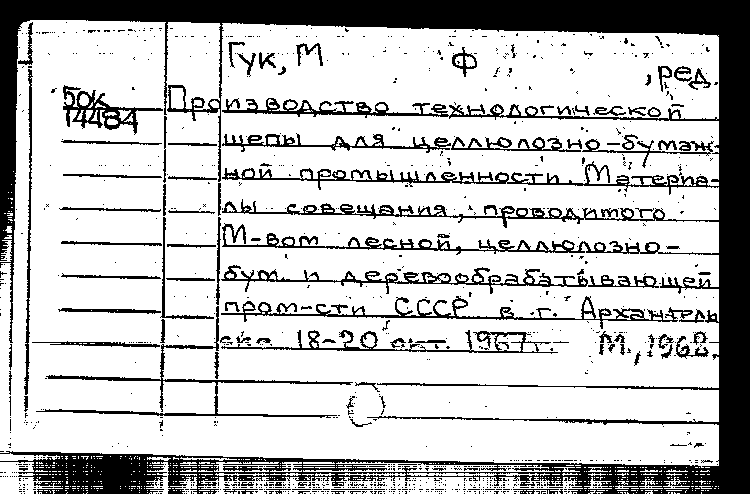 Гук, М Ф , ред.
БОК 14484
Производство технологической
щепы для целлюлозно-бумаж-
ной промышленности. Материа-
лы совещания, проводимого
М-вом лесной, целлюлозно-
бум. и деревообрабатывающей
пром-сти СССР в г. Архангель
ске 18-20 окт. 1967г. М., 1968.